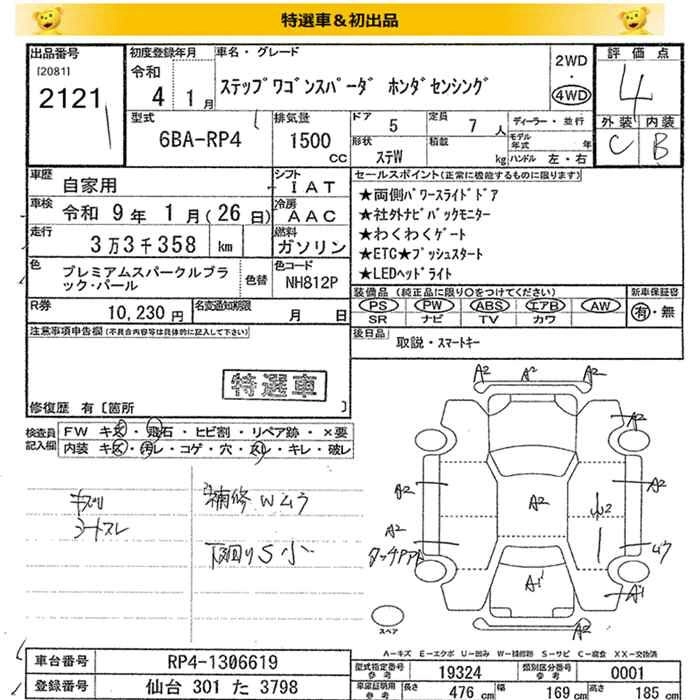 特選車＆初出品
出品番号
[2081]
2121
初度登録年月
令和
4 1月
車名・グレード
ステップワゴンスパーダ ホンダセンシング
2WD
・
4WD
評価点
4
外装 内装
C B
型式
6BA-RP4
排気量
1500
CC
ドア
5
定員
7人
ディーラー・並行
形状
ステW
積載
kg
モデル年式 年
ハンドル 左・右
車歴
自家用
シフト
IAT
車検
令和 9年 1月(26日)
冷房
AAC
走行
3万3千358 km
燃料
ガソリン
色
プレミアムスパークルブラック・パール
色替
色コード
NH812P
R券
10,230円
名変通知期限
月 日
セールスポイント(正常に機能するものに限ります)
★両側パワースライドドア
★社外ナビバックモニター
★わくわくゲート
★ETC★プッシュスタート
★LEDヘッドライト
装備品 (純正品に限り○をつけてください)
新車保証書
PS PW ABS エアB AW
SR ナビ TV カワ
有・無
後日品
取説・スマートキー
注意事項申告欄(不具合内容等は具体的に記入して下さい)
特選車
修復歴 有〔箇所 〕
検査員記入欄
FW キズ・飛石・ヒビ割・リペア跡・×要
内装 キズ・汚レ・コゲ・穴・スレ・キレ・破レ
シートスレ
補修Wムラ
下回りS小
A2 A2 A2
A2
A2
A2
A2
A2
タッチアト
ムラ
A1
A1
A2
スペア
A-キズ E-エクボ U-凹み W-補修跡 S-サビ C-腐食 XX-交換済
車台番号
RP4-1306619
登録番号
仙台 301 た 3798
型式指定番号
参考
19324
類別区分番号
参考
0001
車庫証明用
参考
長さ
476 cm
幅
169 cm
高さ
185 cm